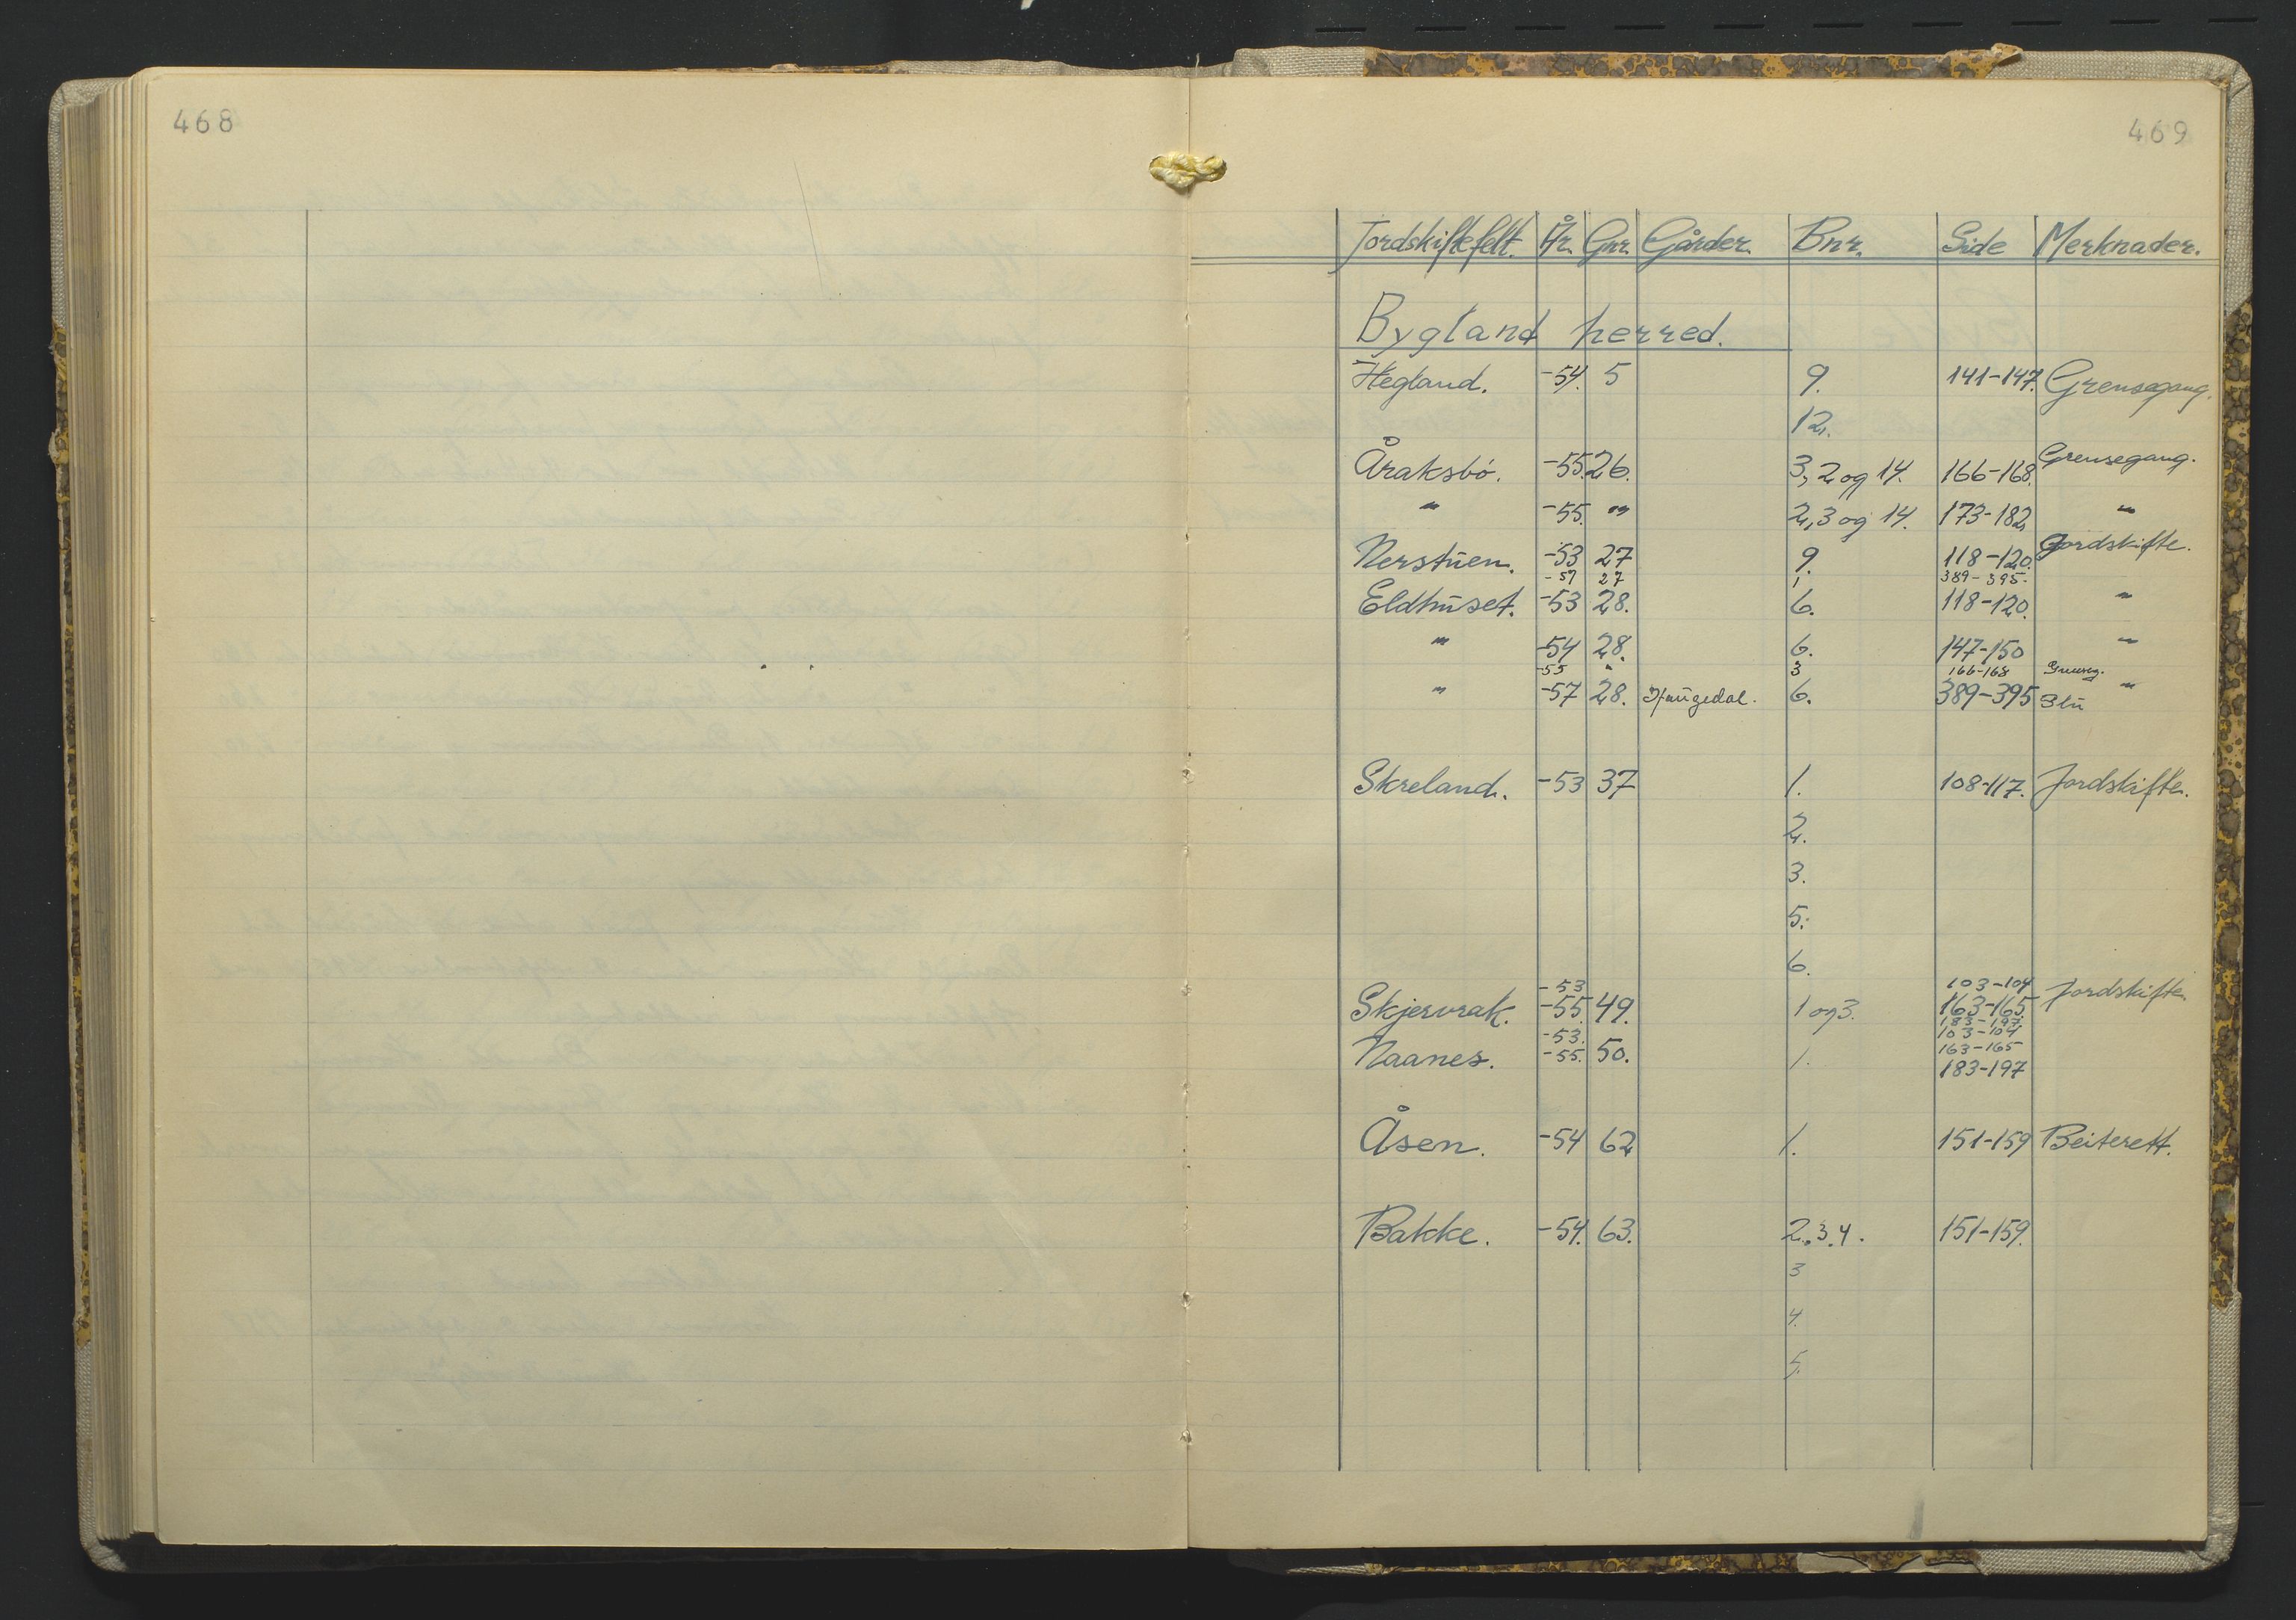 468
469
Jordskiftefelt. År. Gnr. Gårder. Bnr. Side Merknader.
Bygland herred.
Hegland. -54. 5 9. 141-147. Grensegang.
12.
Åraksbø. -55. 26. 3, 2 og 14. 166-168. Grensegang.
" -55. " 2, 3 og 14. 173-182 "
Nerstuen. -53 27 9. 118-120. Jordskifte.
-57 27 1. 389-395.
Eldhuset. -53 28. 6. 118-120. "
" -54 28. 6. 147-150 "
-55 " 3 166-168 Grenseg.
" -57 28. 6. 389-395 "
Skreland. -53 37 1. 108-117. Jordskifte.
2.
3.
5.
6.
-53 103-104
Skjervrak. -55. 49. 1 og 3. 163-165. Jordskifte.
183-197.
-53. 103-104
Naanes. -55. 50. 1. 163-165
183-197
Åsen. -54 62 1. 151-159 Beiterett.
Bakke. -54. 63. 2. 3. 4. 151-159.
3
4.
5.